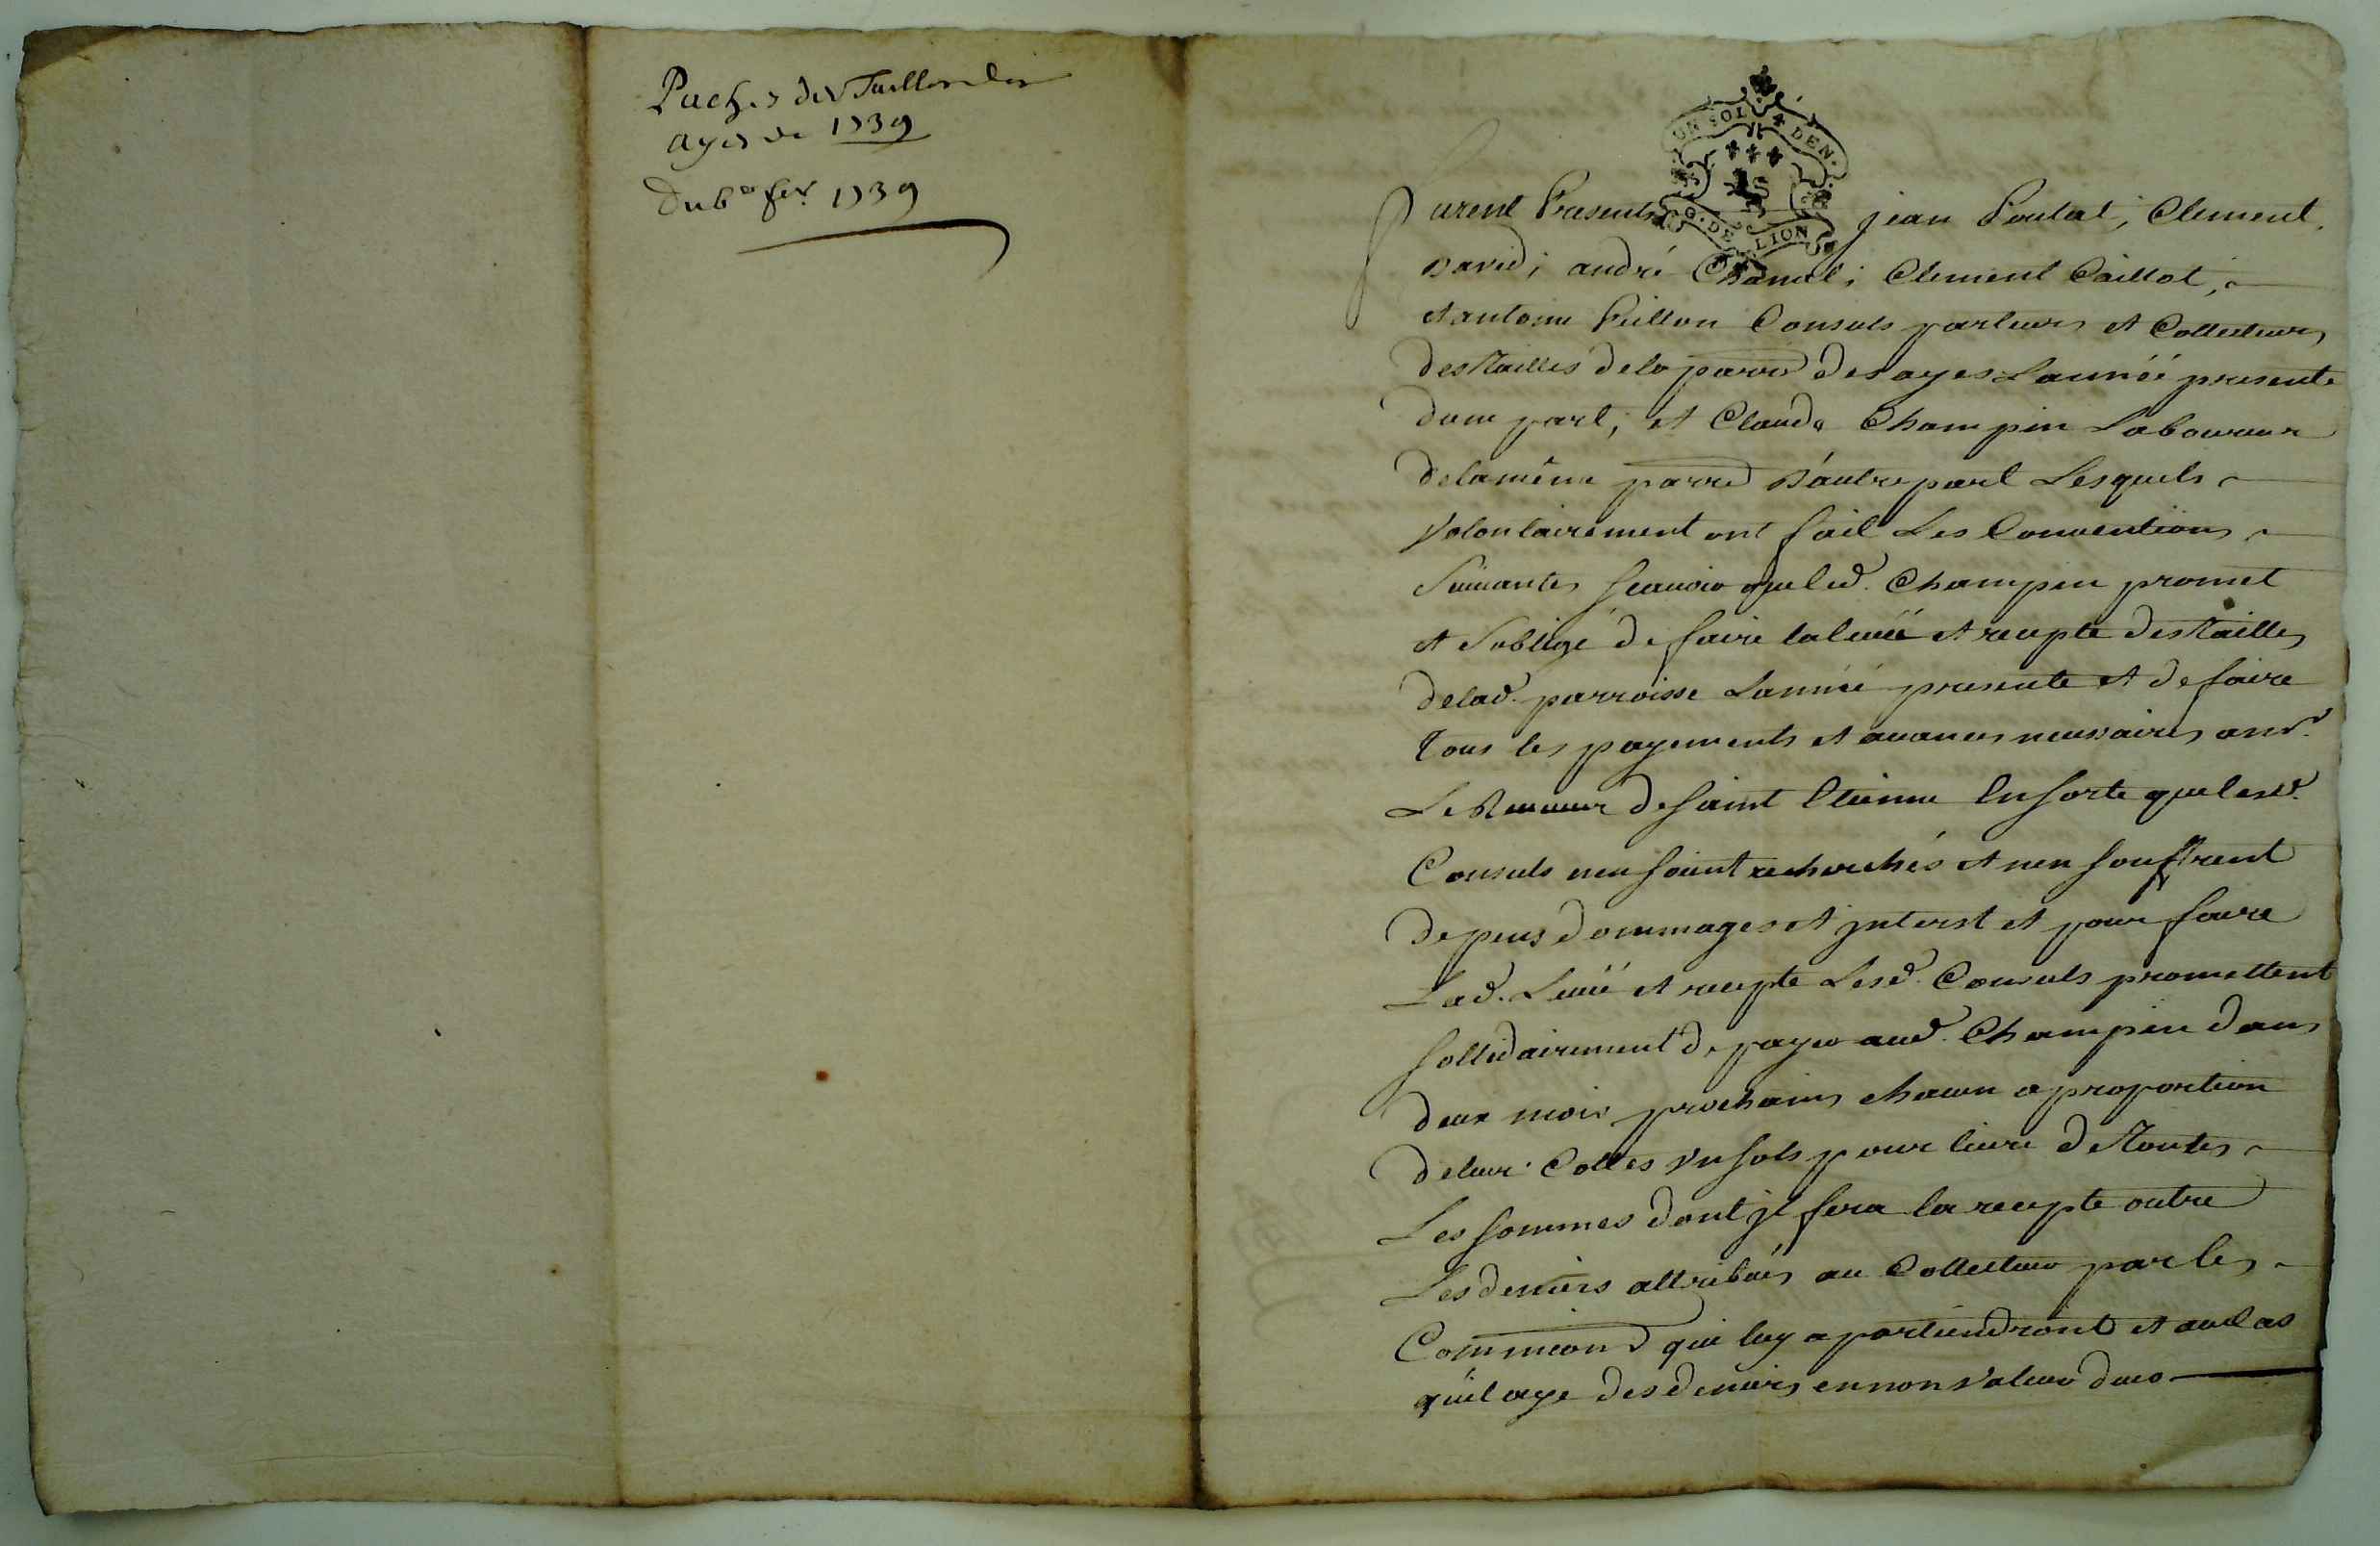 Paches des Tailles des
ayes de 1739
Du 6e fer. 1739
UN SOL 4 DEN.
G. DE LION
Furent Presents jean Poulat, Clement
David; andré Chanel; Clement Caillot,
et antoine Peillon Consuls parleurs et Collecteurs
des Tailles de la parre des ayes Lannéé presente
dune part, et Claude Champin Laboureur
de la même parre d'autre part Lesquels
Volontairement ont fait Les Conventions
Suivantes Scavoir que led. Champin promet
et Soblige de faire la leuéé et recepte des Tailles
de lad. parroisse Lannéé presente et de faire
Tous les payements et avances necessaires
Le Receveur de Saint Etienne En Sorte que lesd.
Consuls nen Soient recherchés et nen Souffrent
depens dommages et jnterst et pour faire
Lad. Leuéé et recepte Lesd. Consuls promettent
Sollidairement de payer aud. Champin dans
deux mois prochains chacun a proportion
de leur Cottes Vn Sols pour livre de Toutes
Les Sommes dont jl fera la recepte outre
Les deniers attribués au Collecteur par les
Commiçons qui luy apartiendront et au Cas
qu'il aye des deniers en non Valeur dues